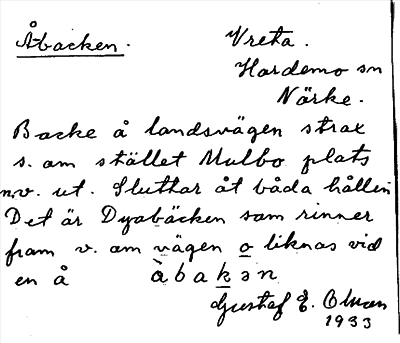 Åbacken. Vreta.
Hardemo sn
Närke.
Backe å landsvägen strax
s. om stället Mulbo plats
nv. ut. Sluttar åt båda hållen
Det är Dyabäcken som rinner
fram v. om vägen o liknas vid
en å àbakən
Gustaf E. Olman
1933